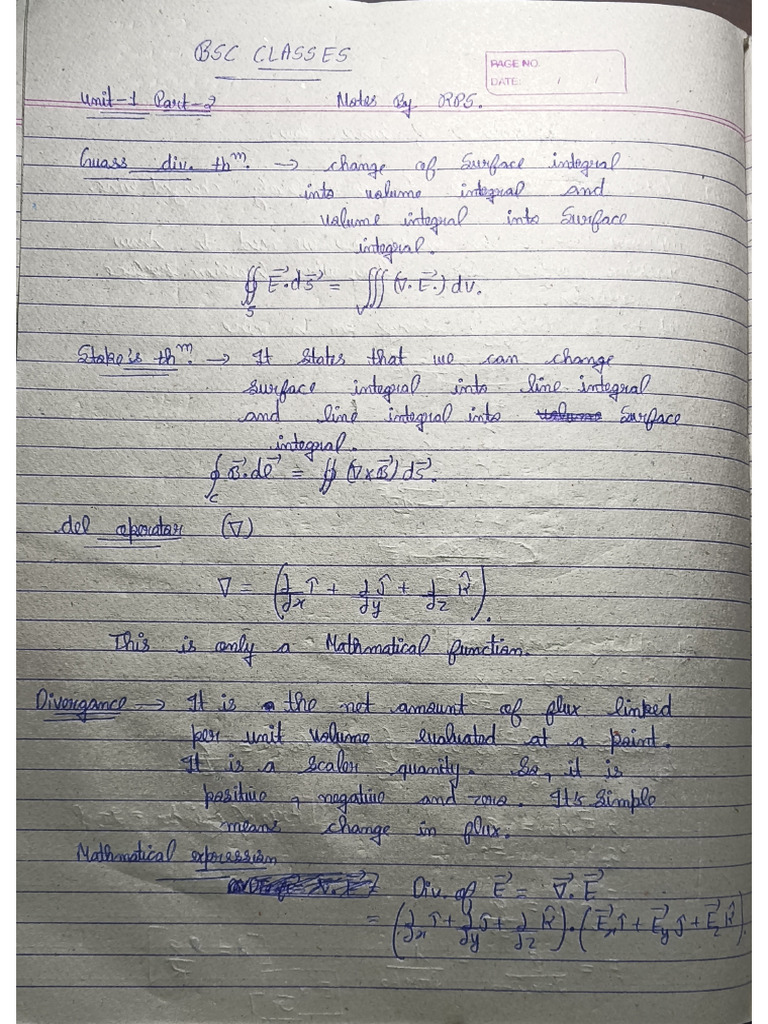 BSC CLASSES
PAGE NO.
DATE: / /
Unit-1 Part-2 Notes By RPS.
Guass div. thm. → change of Surface integral
into volume integral and
volume integral into Surface
integral.
∯_S E⃗·dS⃗ = ∭_V (∇·E⃗.) dv.
Stoke's thm. → It states that we can change
surface integral into line integral
and line integral into Surface
integral.
∮_c B⃗·dl⃗ = ∯ (∇×B⃗) dS⃗.
del operator (∇)
∇ = (∂/∂x î + ∂/∂y ĵ + ∂/∂z k̂).
This is only a Mathmatical function.
Divergance → It is the net amount of flux linked
per unit volume evaluated at a point.
It is a scaler quantity. So, it is
positive, negative and zero. It's simple
means change in flux.
Mathmatical expression
Div. of E⃗ = ∇⃗·E⃗
= (∂/∂x î + ∂/∂y ĵ + ∂/∂z k̂)·(E⃗x î + E⃗y ĵ + E⃗z k̂)